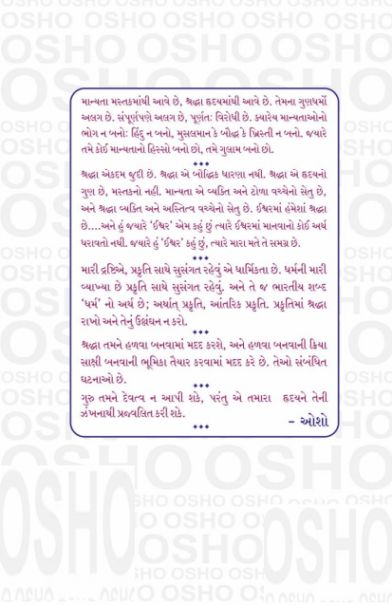 OSHO OSHO OSHO OSHO OSHO
માન્યતા મસ્તકમાંથી આવે છે, શ્રદ્ધા હૃદયમાંથી આવે છે. તેમના ગુણધર્મો
અલગ છે. સંપૂર્ણપણે અલગ છે, પૂર્ણતઃ વિરોધી છે. ક્યારેય માન્યતાઓનો
ભોગ ન બનોઃ હિંદુ ન બનો, મુસલમાન કે બૌદ્ધ કે ખ્રિસ્તી ન બનો. જ્યારે
તમે કોઈ માન્યતાનો હિસ્સો બનો છો, તમે ગુલામ બનો છો.
***
શ્રદ્ધા એકદમ જુદી છે. શ્રદ્ધા એ બૌદ્ધિક ધારણા નથી. શ્રદ્ધા એ હૃદયનો
ગુણ છે, મસ્તકનો નહી. માન્યતા એ વ્યક્તિ અને ટોળા વચ્ચેનો સેતુ છે,
અને શ્રદ્ધા વ્યક્તિ અને અસ્તિત્વ વચ્ચેનો સેતુ છે. ઈશ્વરમાં હંમેશાં શ્રદ્ધા
છે....અને હું જ્યારે ‘ઈશ્વર’ એમ કહું છું ત્યારે ઈશ્વરમાં માનવાનો કોઈ અર્થ
ધરાવતો નથી. જ્યારે હું ‘ઈશ્વર’ કહું છું, ત્યારે મારા મતે તે સમગ્ર છે.
***
મારી દ્રષ્ટિએ, પ્રકૃતિ સાથે સુસંગત રહેવું એ ધાર્મિકતા છે. ધર્મની મારી
વ્યાખ્યા છે પ્રકૃતિ સાથે સુસંગત રહેવું. અને તે જ ભારતીય શબ્દ
‘ધર્મ’ નો અર્થ છે; અર્થાત્ પ્રકૃતિ, આંતરિક પ્રકૃતિ. પ્રકૃતિમાં શ્રદ્ધા
રાખો અને તેનું ઉલ્લંઘન ન કરો.
***
શ્રદ્ધા તમને હળવા બનવામાં મદદ કરશે, અને હળવા બનવાની ક્રિયા
સાક્ષી બનવાની ભૂમિકા તૈયાર કરવામાં મદદ કરે છે. તેઓ સંબંધિત
ઘટનાઓ છે.
***
ગુરુ તમને દેવત્વ ન આપી શકે, પરંતુ એ તમારા હૃદયને તેની
ઝંખનાથી પ્રજ્વલિત કરી શકે.
***
– ઓશો
OSHO OSHO OSHO OSHO OSHO